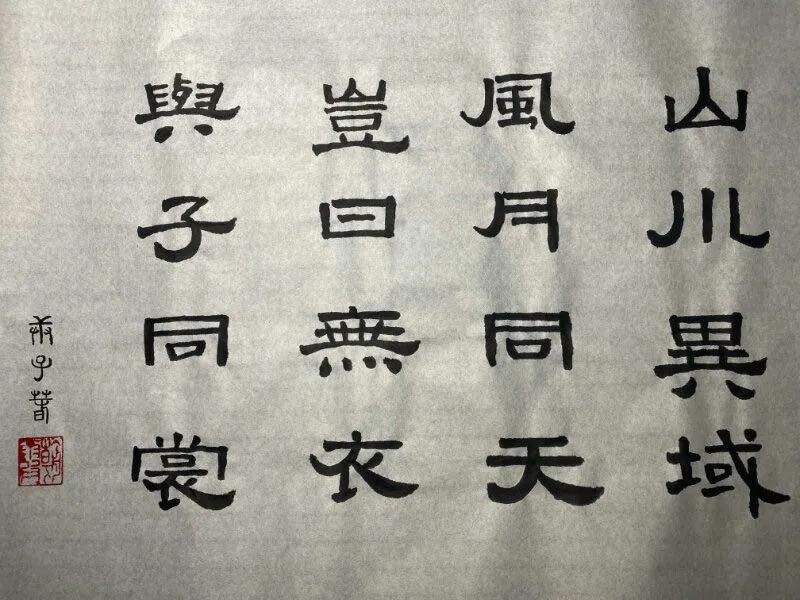 山川異域
風月同天
豈曰無衣
與子同裳
庚子春